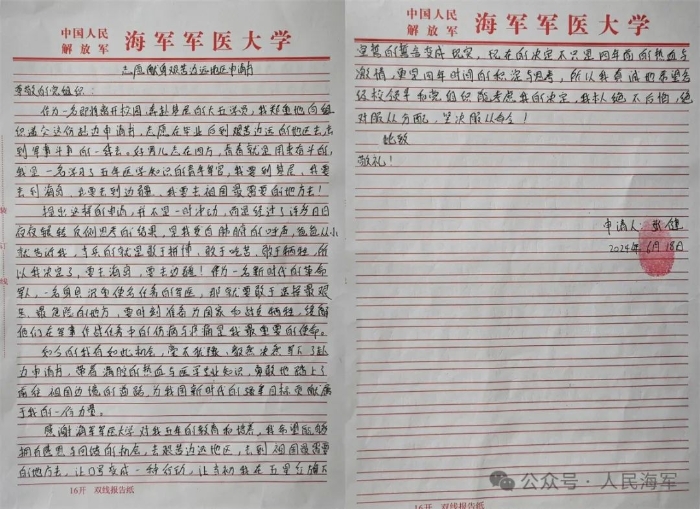 中国人民
解放军 海军军医大学
志愿献身艰苦边远地区申请书
尊敬的党组织:
作为一名即将离开校园奔赴基层的大五学员,我郑重地向组
织递交这份赴边申请书,志愿在毕业后到艰苦边远的地区去,去
到军事斗争的一线去。好男儿志在四方,青春就是用来奋斗的,
我是一名学习了五年医学知识的青年军官,我要到基层,我要
去到海岛,也要去到边疆,我要去祖国最需要的地方去!
提出这样的申请,我不是一时冲动,而是经过了许多日日
夜夜辗转反侧思考的结果,是我发自肺腑的呼声,爸爸从小
就告诉我,当兵的就是敢于拼搏,敢于吃苦,敢于牺牲,所
以我决定了,要去海岛,要去边疆!作为一名新时代的革命
军人,一名肩负沉重使命任务的军医,那就要敢于选择最艰
苦、最危险的地方,要时刻准备为国家而战而牺牲,缓解
他们在军事作战任务中的伤病与疾病是我最重要的使命。
如今的我有如此机会,毫不犹豫、毅然决然写下了赴
边申请书,带着满腔的热血与医学专业知识,勇敢地踏上了
前往祖国边疆的道路,为我国新时代的强军目标贡献属
于我的一份力量。
感谢海军军医大学对我五年的教育和培养,我希望能够
拥有感恩与回馈的机会,去艰苦边远地区,去到祖国最需要
的地方去,让口号变成一种行动,让当初我在五星红旗下
16开 双线报告纸
中国人民
解放军 海军军医大学
宣誓的誓言变成现实,现在的决定不只是四年前的热血与
激情,更是四年时间的积淀与思考,所以我真诚地希望各
级校领导和党组织能考虑我的决定,我永绝不后悔,绝
对服从分配,坚决服从命令!
此致
敬礼!
申请人:
2024年6月18日
16开 双线报告纸
公众号·人民海军